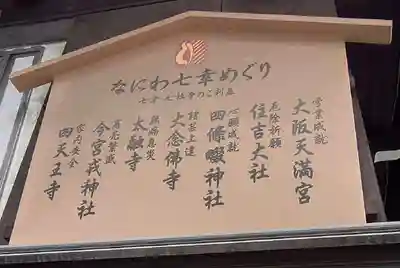 なにわ七幸めぐり
七幸 七社寺のご利益
学業成就
大阪天満宮
厄除祈願
住吉大社
心願成就
四條畷神社
諸芸上達
大念佛寺
無病息災
太融寺
商売繁盛
今宮戎神社
家内安全
四天王寺